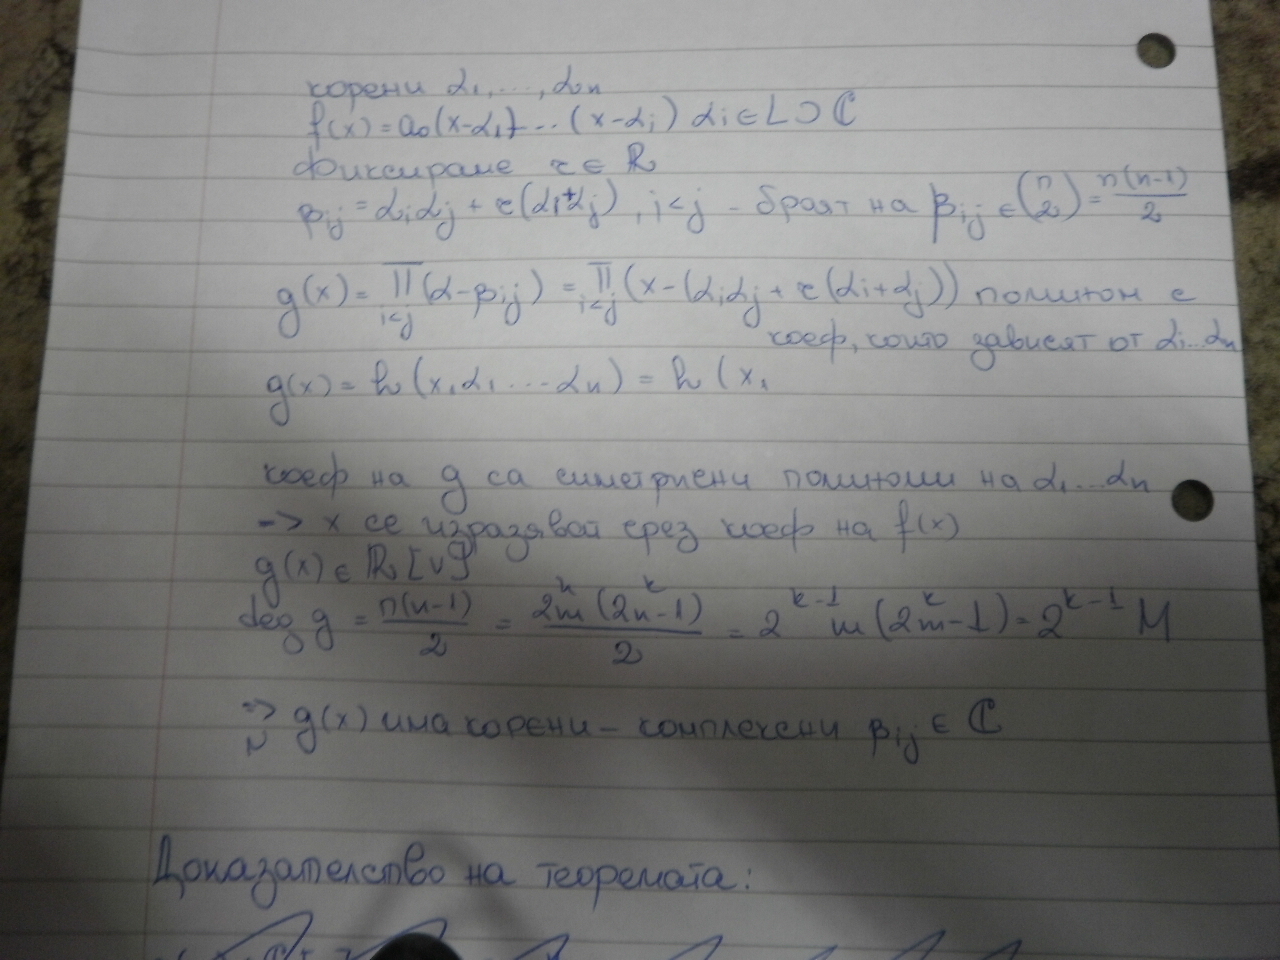 корени α₁, ..., αn
f(x) = a₀(x-α₁)...(x-αi) αi ∈ L ⊃ ℂ
Фиксираме r ∈ ℝ
βij = αiαj + r(αi+αj), i<j - броят на βij ∈ (n 2) = n(n-1)/2
g(x) = ∏ i<j (α-βij) = ∏ i<j (x-(αiαj + r(αi+αj)) полином с
коеф, които зависят от αi...αn
g(x) = h(x, α₁...αn) = h(x,
коеф на g са симетрични полиноми на α₁...αn
-> x се изразяват чрез коеф на f(x)
g(x) ∈ ℝ[v]
deg g = n(n-1)/2 = 2ᵏm(2ᵏn-1)/2 = 2ᵏ⁻¹ m(2ᵏm-1) = 2ᵏ⁻¹ M
=> g(x) има корени - комплексни βij ∈ ℂ
Доказателство на теоремата: